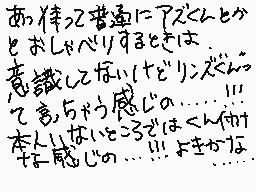 あっ待って普通にアズくんとか
とおしゃべりするときは
意識してないけどリンズくんっ
て言っちゃう感じの……!!!
本人いないところではくん付け
な感じの…!!! よきかな…